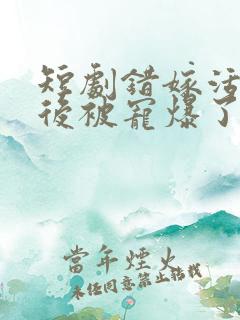 短劇錯嫁活
後被寵爆了
當年煙火
未經同意禁止轉載